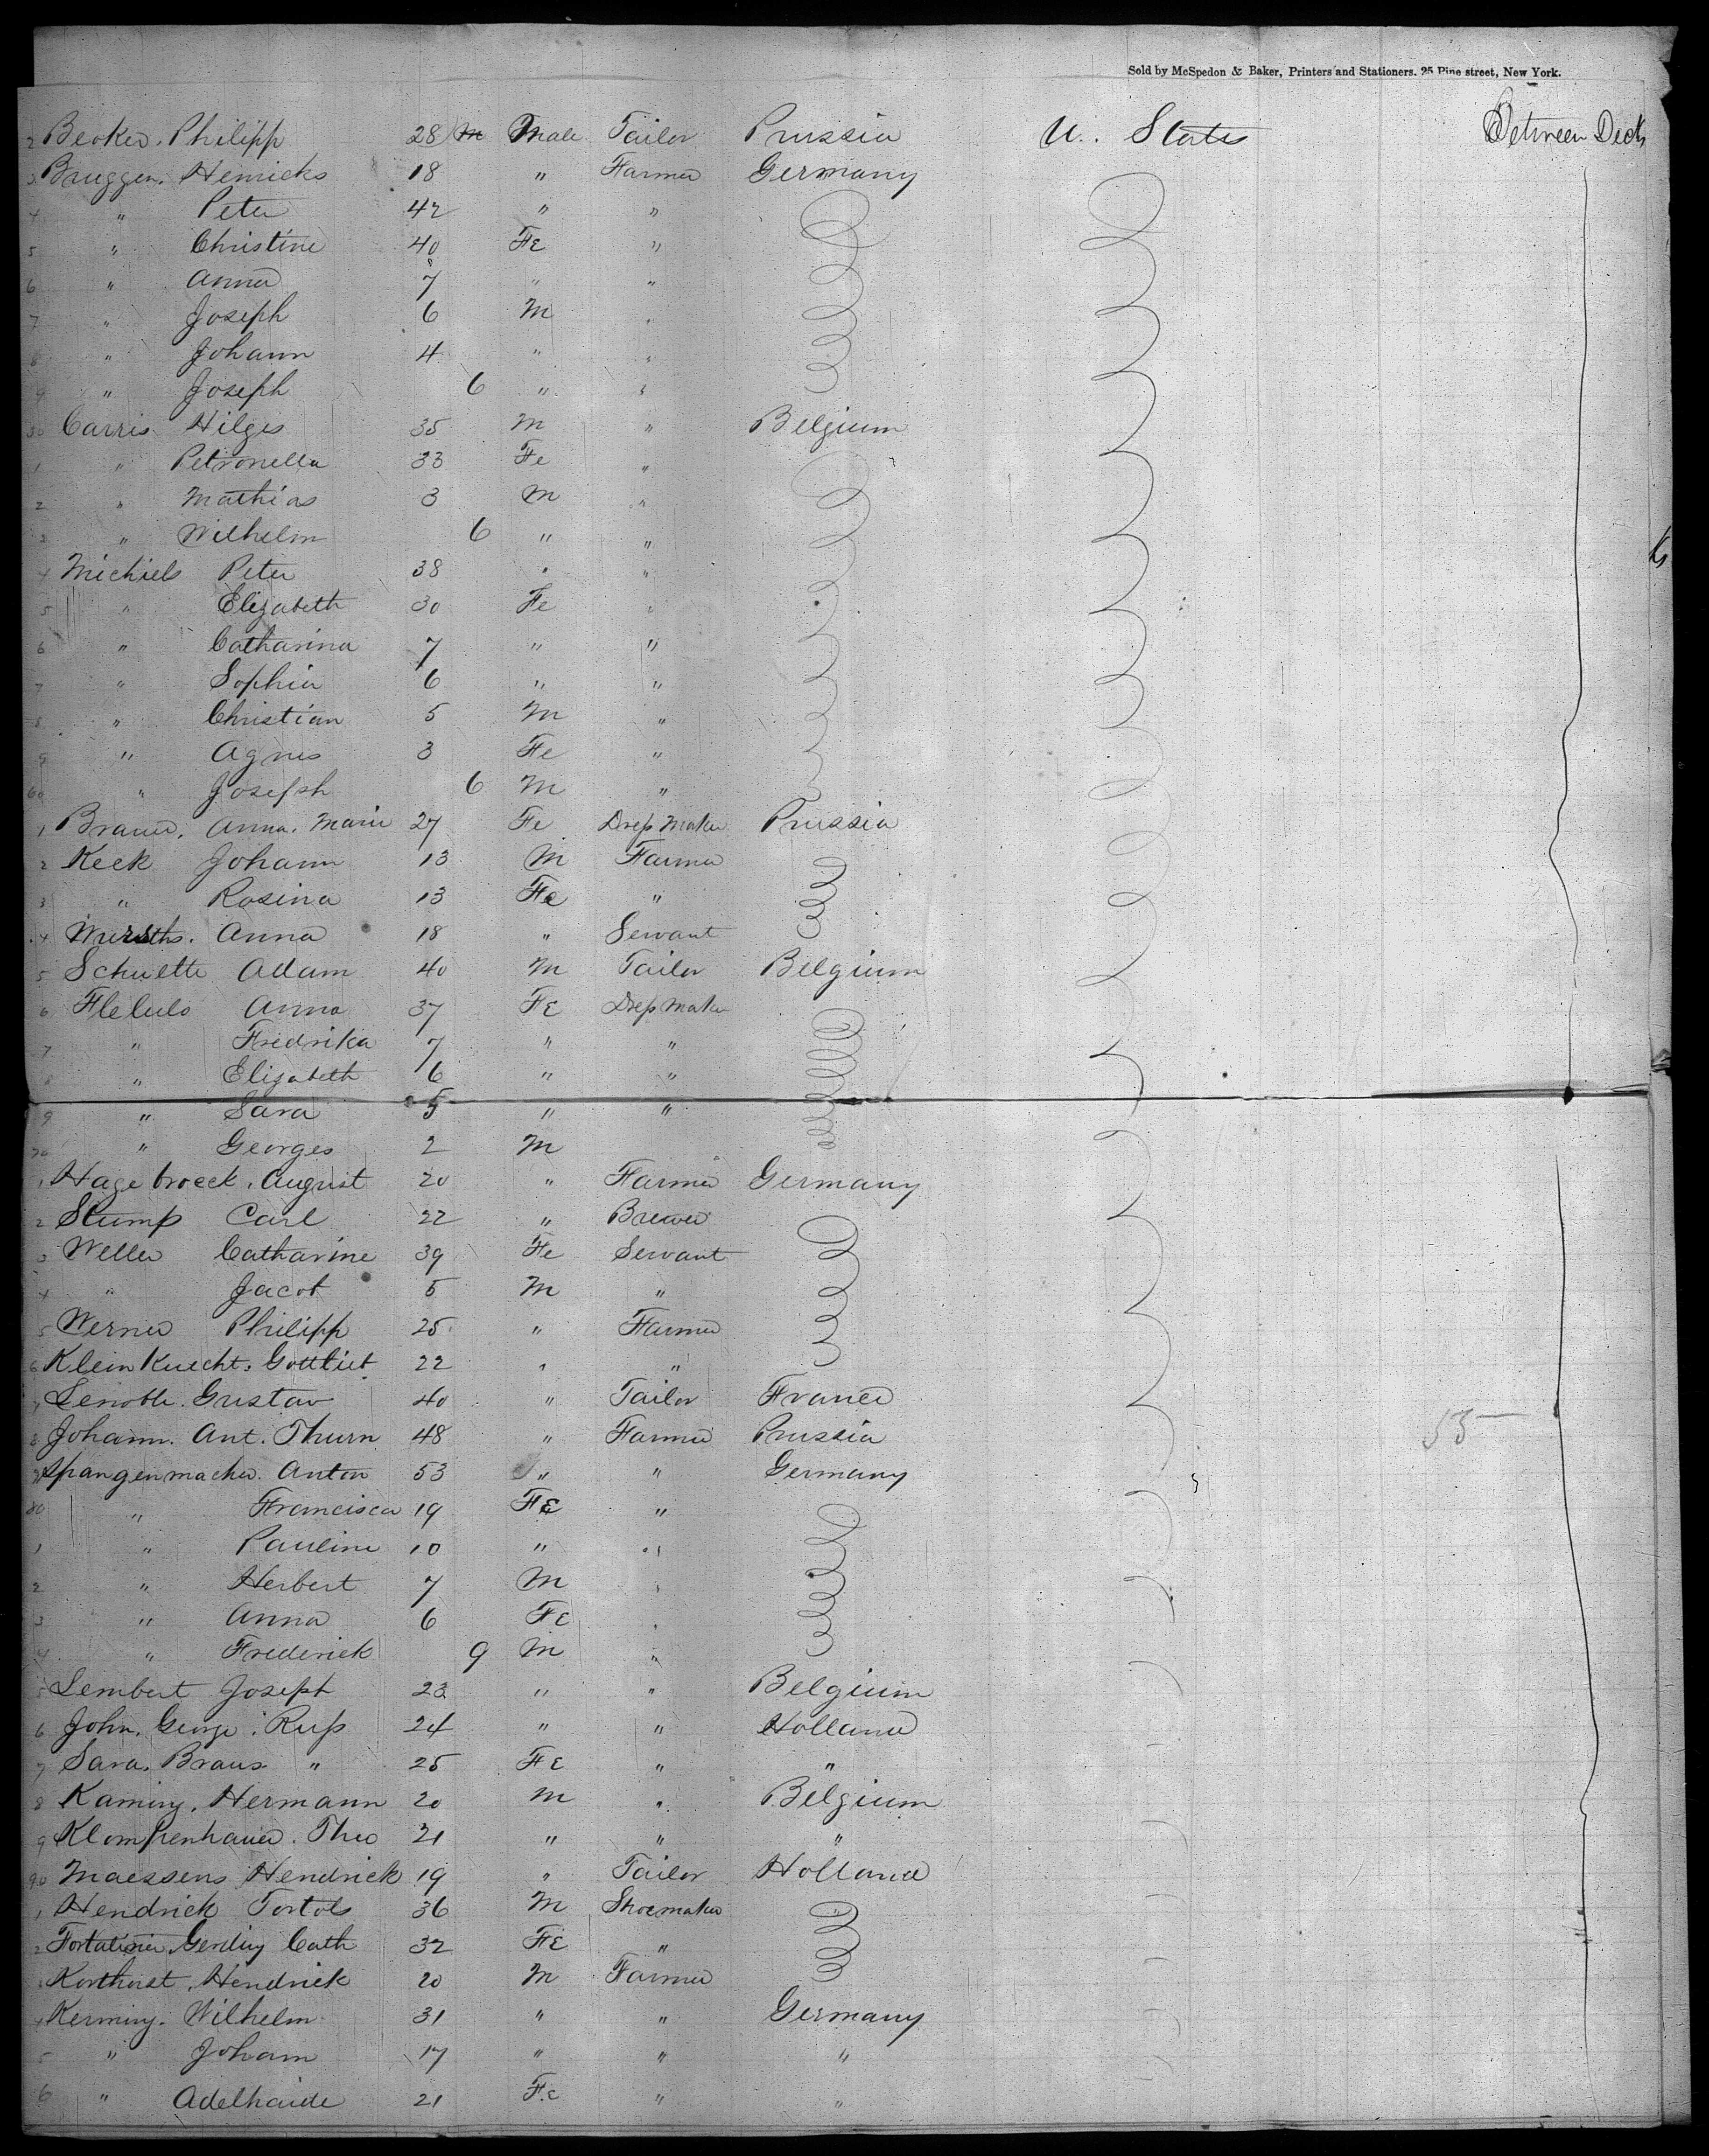 Sold by McSpedon & Baker, Printers and Stationers. 25 Pine street, New York.
2 Becker, Philipp 28 m Male Tailor Prussia U. States Between Deck
3 Bruggen. Henricks 18 " Farmer Germany
4 " Peter 42 " "
5 " Christine 40 Fe "
6 " Anna 7 " "
7 " Joseph 6 M "
8 " Johann 4 " "
9 " Joseph 6 " "
50 Carris Hilges 35 M " Belgium
1 " Petronella 33 Fe "
2 " Mathias 3 M "
3 " Wilhelm 6 " "
4 Michiels Peter 38 " "
5 " Elizabeth 30 Fe "
6 " Catharina 7 " "
7 " Sophia 6 " "
8 " Christian 5 M "
9 " Agnes 3 Fe "
60 " Joseph 6 M "
1 Brauer, Anna. Marie 27 Fe Dress Maker Prussia
2 Keck Johann 13 M Farmer
3 " Rosina 13 Fe "
4 Anna 18 " Servant
5 Schuette Adam 40 M Tailor Belgium
6 Anna 37 Fe Dress Maker
7 " Fredrika 7 " "
8 " Elizabeth 6 " "
9 " Sara 5 " "
70 " Georges 2 M
1 Hagebroeck. August 20 " Farmer Germany
2 Stump Carl 22 " Brewer
3 Weller Catharine 39 Fe Servant
4 " Jacob 5 M "
5 Werner Philipp 25 " Farmer
6 Kleinknecht. Gottlieb 22 " "
7 Lenoble. Gustav 40 " Tailor France
8 Johann. Ant. Thurn 48 " Farmer Prussia 55
9 Spangenmacher. Anton 53 " " Germany
80 " Francisca 19 Fe "
1 " Pauline 10 " "
2 " Herbert 7 M "
3 " Anna 6 Fe "
4 " Frederick 9 M "
5 Lembert Joseph 23 " " Belgium
6 John. George. Rup 24 " " Holland
7 Sara. Braus " 25 Fe " "
8 Kaming. Hermann 20 M " Belgium
9 Klompenhauer. Theo 21 " " "
90 Maessens Hendrick 19 " Tailor Holland
1 Hendrick Tortols 36 M Shoemaker "
2 Gerding Cath 32 Fe "
3 Korthorst. Hendrick 20 M Farmer
4 Kerming. Wilhelm 31 " " Germany
5 " Johann 17 " " "
6 " Adelhaide 21 Fe " "